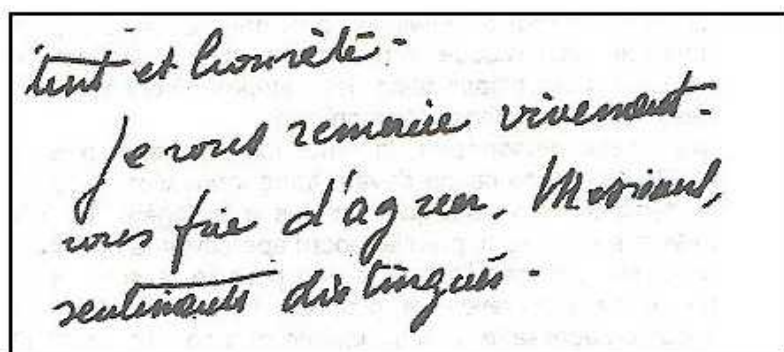 tent et honnête.
Je vous remercie vivement.
vous prie d'agréer, Messieurs,
sentiments distingués.